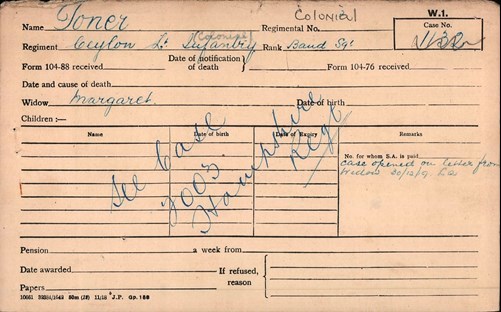 Colonial
W.1.
Name Toner Regimental No.
Case No.
1132
Colonial
Regiment Ceylon Lt Infantry Rank Band Sgt
Form 104-88 received Date of notification of death Form 104-76 received
Date and cause of death
Widow Margaret Date of birth
Children :—
Name Date of birth Date of Expiry Remarks
See Case
2003
Hampshire
Regt
No. for whom S.A. is paid
Case opened on letter from
Widow 20/12/19.
Pension a week from
Date awarded If refused, reason
Papers
11/18 J.P. Gp. 188